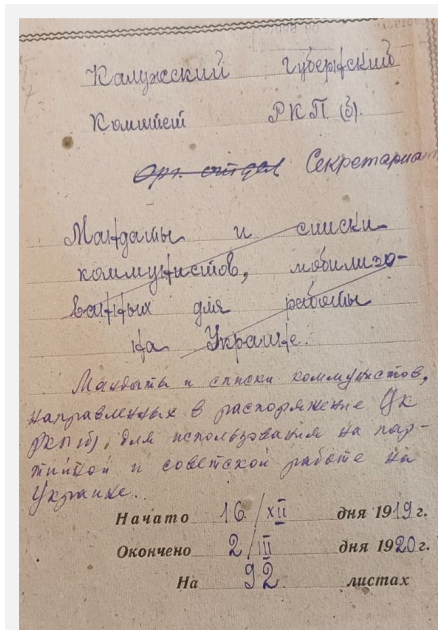 Калужский Губернский
Комитет РКП(б).
Орг. отдел Секретариат
Мандаты и списки
коммунистов, мобилизо-
ванных для работы
на Украине.
Мандаты и списки коммунистов,
направленных в распоряжение ЦК
РКП(б), для использования на пар-
тийной и советской работе на
Украине.
Начато 16/XII дня 1919 г.
Окончено 2/III дня 1920 г.
На 92 листах